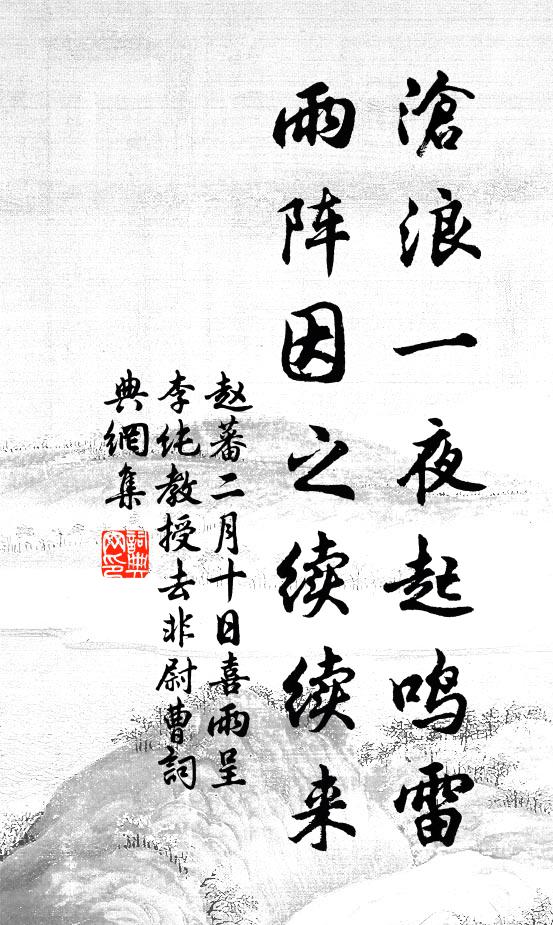 滄浪一夜起鸣雷
雨阵因之续续来
赵蕃二月十日喜雨呈
李纯教授去非尉曹詞
典網集
詞典網印